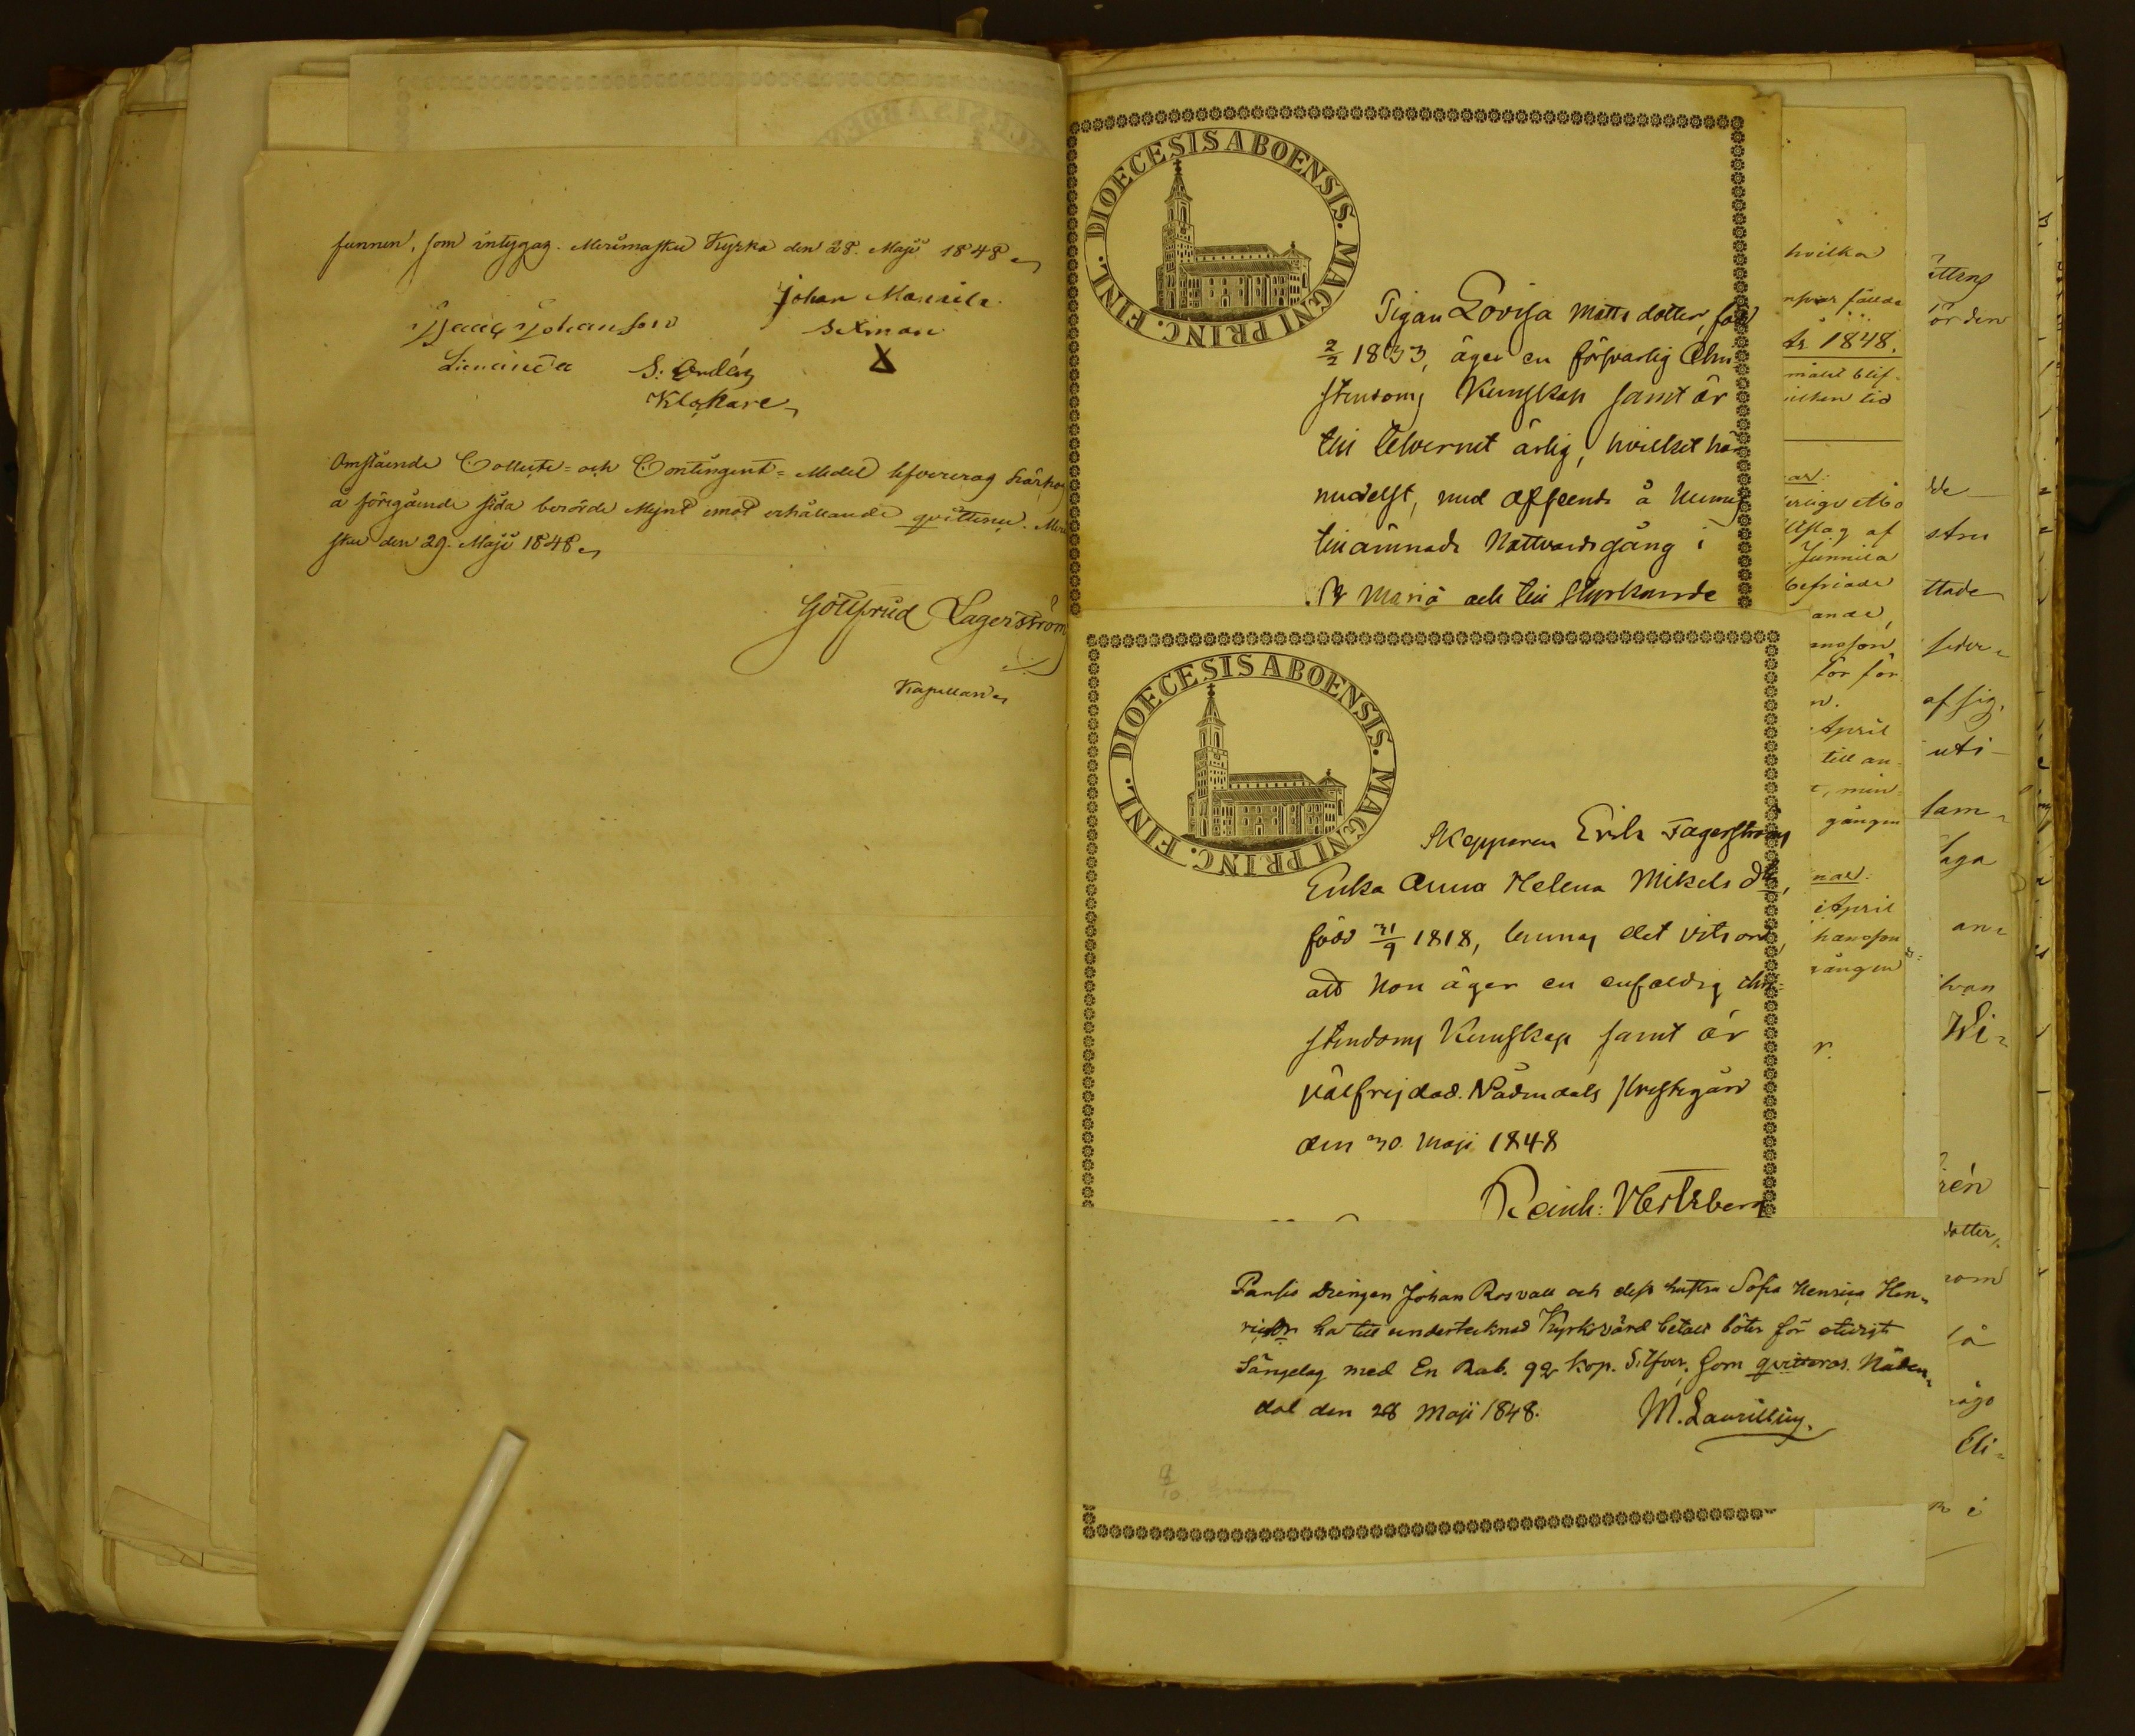 funnen, som intygas. Merimasku Kyrka den 28. Maji 1848
Johan Mannila
Isaac Johansson
Sexman
Liemänen
S: Ordén
X
Klockare
Omstående Collect= och Contingent=Medel lefvereras härhos
å föregående sida berörde Mynt emot erhållande qvittence. Meri
sku den 29. Maji 1848
Gottfrid Lagerström
Kapellan
DIOECESIS ABOENSIS. MAGNI PRINC. FINL.
Pigan Lovisa Matts dotter, född
2/2 1833, äger en försvarlig Chri
stendoms Kunskap samt är
till lefvernet ärlig, hvilket här
medelst, med afseende å hennes
tillämnade Nattvardsgång i
St Mariæ och till styrkande
DIOECESIS ABOENSIS. MAGNI PRINC. FINL.
Skepparen Erik Fagerströms
Enka Anna Helena Mikels dtr,
född 31/9 1818, lemnas det vitsord,
att hon äger en enfaldig chri=
stendoms Kunskap samt är
välfrejdad. Nådendals Prestegård
den 30. Maji 1848
Reinh: Westzberg
Pansio Drängen Johan Rosvall och dess hustru Sofia Henrica Hen=
ricsdr har till undertecknad Kyrkovärd betalt böter för otidigt
Sängelag med En Rub. 92 kop. Silfver, Som qvitteras. Nåden=
dal den 28 Maji 1848.
M. Laurillius.
hvilka
år 1848.
målet blif-
Junnila
befriade
ande,
för för
April
till an-
t, min
gången
April
hansson
gången
r.
ttens
ör den
dde
stru
ttade
seder=
af sig,
uti-
sam=
laga
an=
hvan
Wi=
rén
dotter,
rom
så
någo
Eli=
i